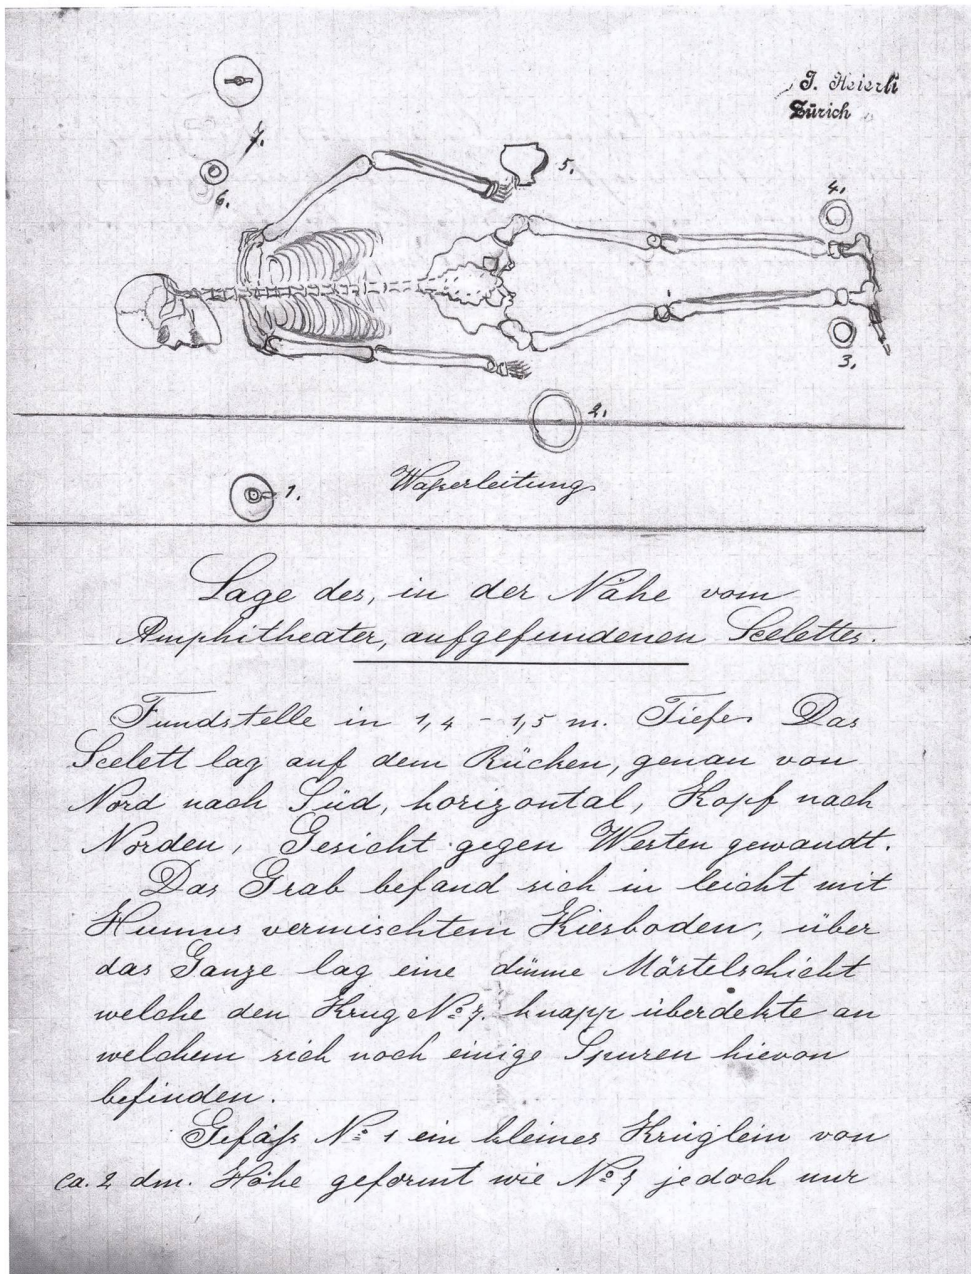 J. Heierli
Zürich
7.
6.
5.
4.
3.
2.
1.
Waſserleitung
Lage des, in der Nähe vom
Amphitheater, aufgefundenen Scelettes.
Fundstelle in 1,4 - 1,5 m. Tiefe. Das
Scelett lag auf dem Rücken, genau von
Nord nach Süd, horizontal, Kopf nach
Norden, Gesicht gegen Westen gewandt.
Das Grab befand sich in leicht mit
Humus vermischtem Kiesboden, über
das Ganze lag eine dünne Mörtelschicht
welche den Krug No 7, knapp überdekte an
welchem sich noch einige Spuren hievon
befinden.
Gefäſs No 1 ein kleines Krüglein von
ca. 2 dm. Höhe geformt wie No 7 jedoch nur